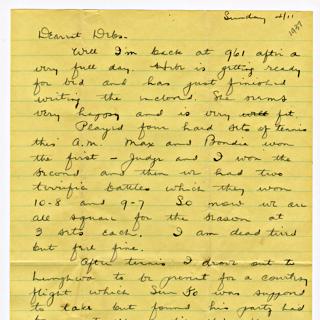 Sunday 4/11
1937
Dearest Debs.
Well I'm back at 961 after a
very full day. is getting ready
for bed and has just finished
writing the enclosed. She seems
very happy and is very well fit.
Played four hard sets of tennis
this A.M. Max and Bondie won
the first - Judge and I won the
second, and then we had two
terrific battles which they won
10-8 and 9-7 So now we are
all square for the season at
3 sets each. I am dead tired
but feel fine.
After tennis I drove out to
Lunghwa to be present for a courtesy
flight which Sun Fo was supposed
to take but found his party had